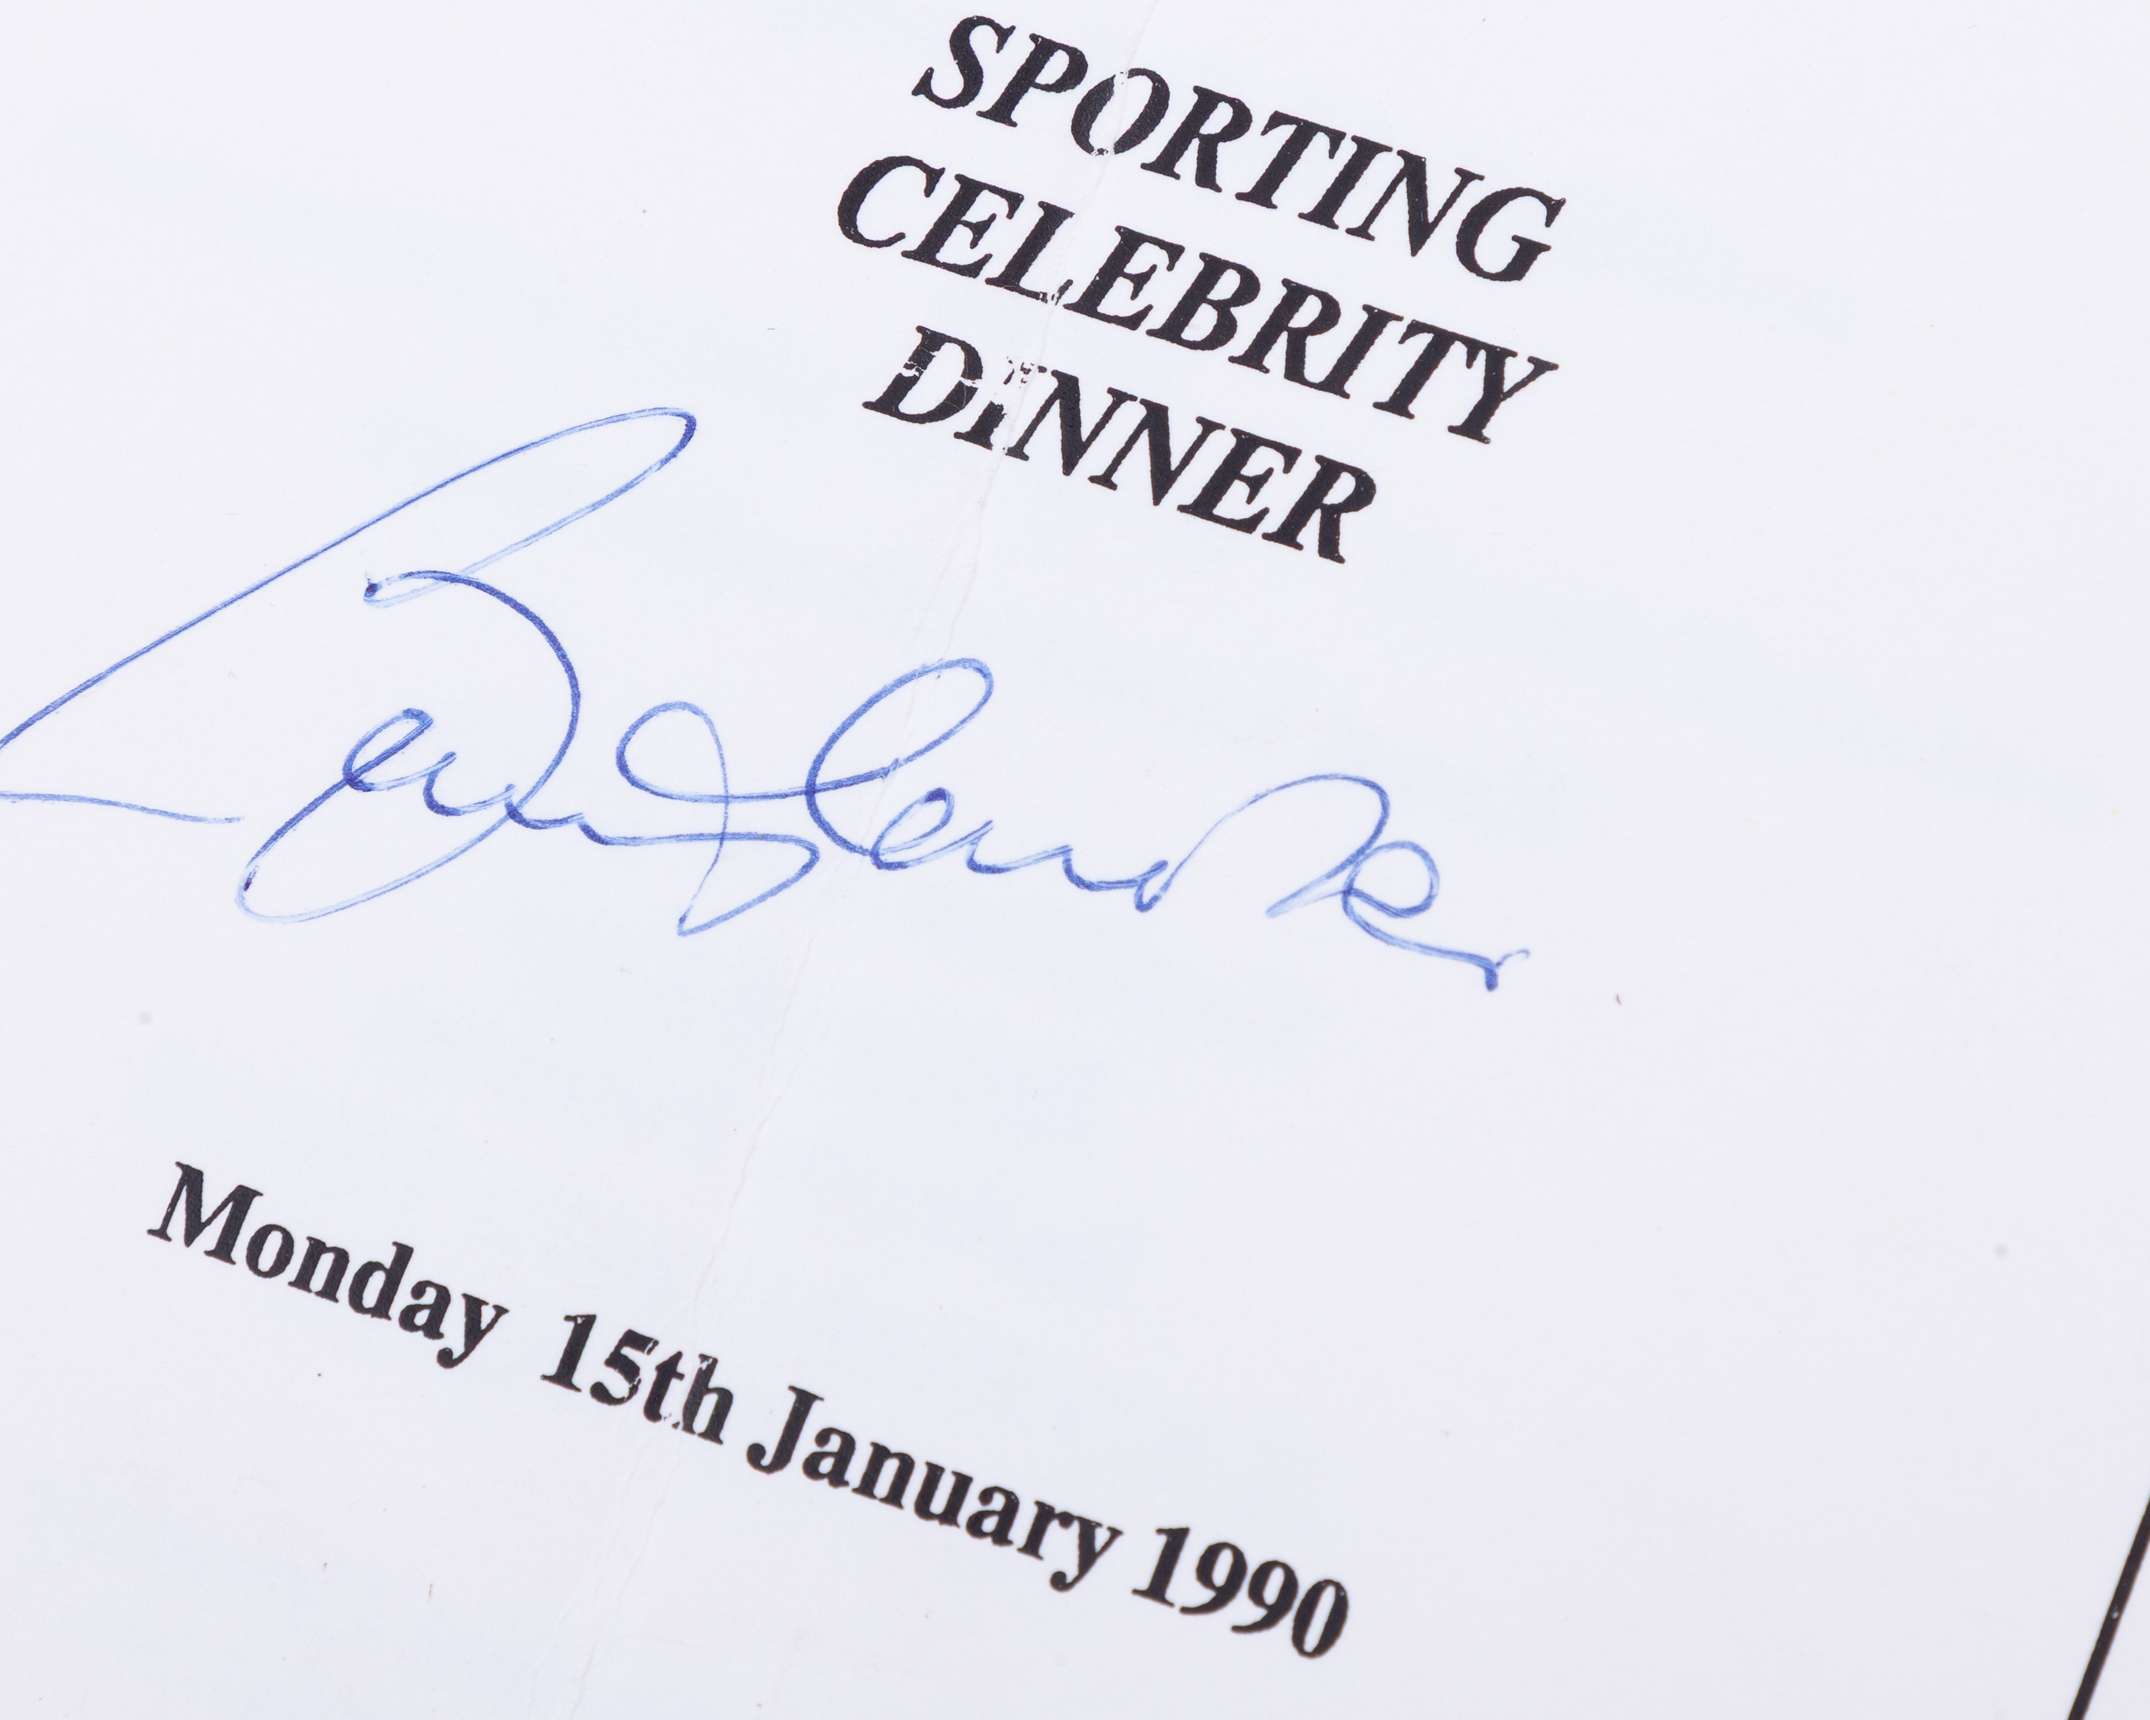 SPORTING
CELEBRITY
DINNER
Monday 15th January 1990